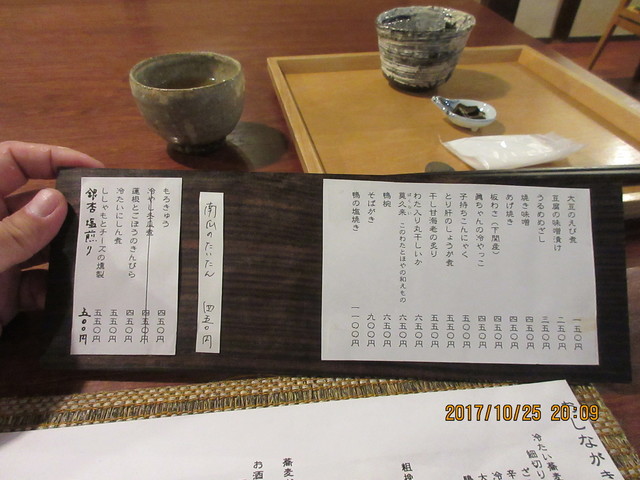 大豆のえび煮 一五〇円
豆腐の味噌漬け 二五〇円
うるめめざし 三五〇円
焼き味噌 四五〇円
あげ焼き 四五〇円
板わさ(下関産) 四五〇円
興ちゃんの冷やっこ 四五〇円
子持ちこんにゃく 五〇〇円
とり肝のしょうが煮 五五〇円
干し甘海老の炙り 五五〇円
わた入り丸干しいか 六五〇円
莫久来 このわたとほやの和えもの 六五〇円
鴨椀 六五〇円
そばがき 九〇〇円
鴨の塩焼き 一一〇〇円
南瓜のたいたん 四五〇円
もろきゅう 四五〇円
冷やし冬瓜煮 四五〇円
蓮根とごぼうのきんぴら 四五〇円
冷たいにしん煮 五五〇円
ししゃもとチーズの燻製 五五〇円
銀杏塩煎り 五〇〇円
しながき
冷たい蕎麦
細切り
粗挽
蕎麦
お酒
2017/10/25 20:09